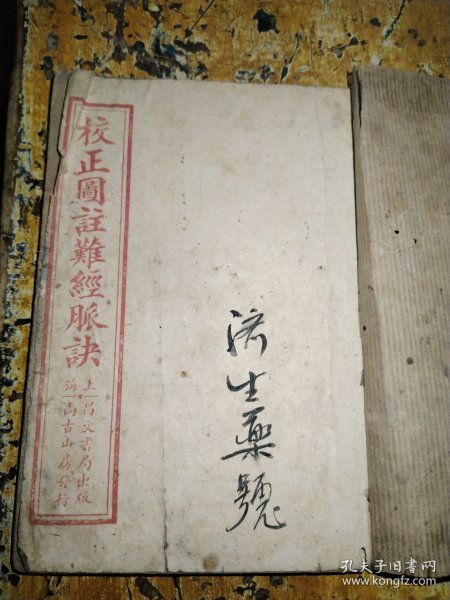 校正圖註難經脈訣
上海
昌文書局出版
尚古山房發行
济生藥號
孔夫子旧书网
www.kongfz.com